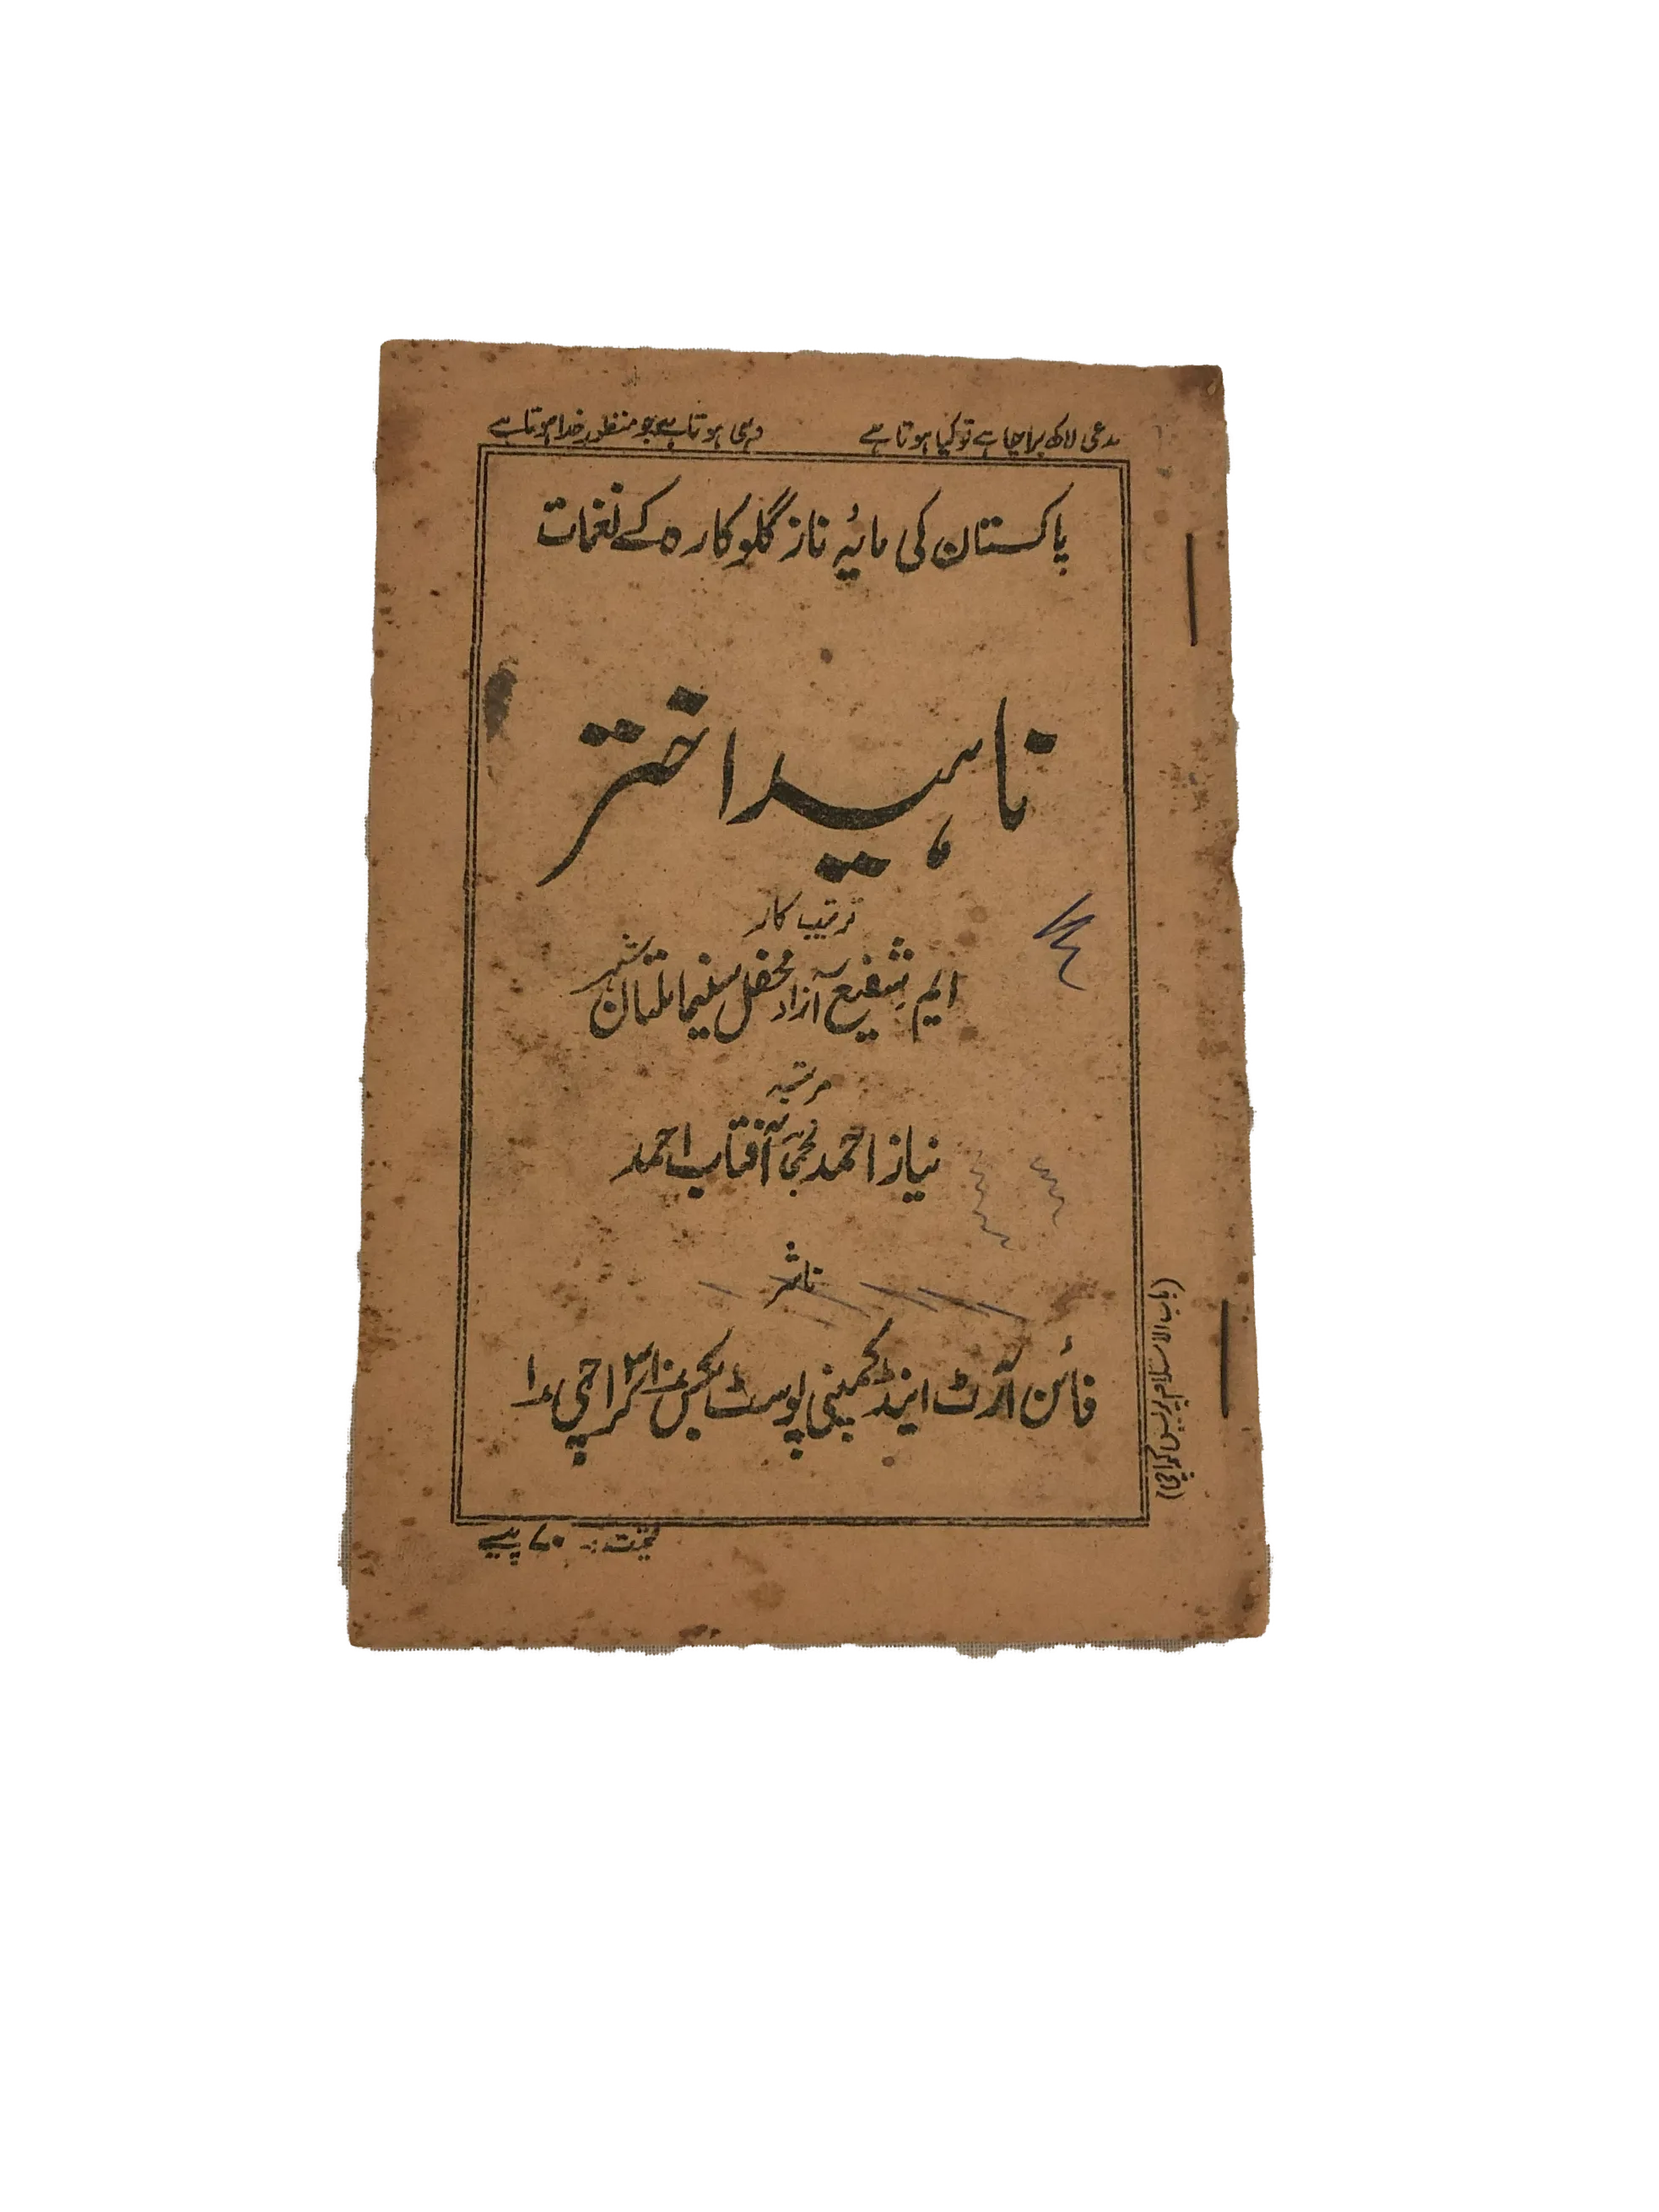 مدعی لاکھ برا چاہے تو کیا ہوتا ہے وہی ہوتا ہے جو منظور خدا ہوتا ہے
پاکستان کی مائیہ ناز گلوکارہ کے نغمات
ناہید اختر
ترتیب کار
ایم شفیع آزاد محفل سینما ملتان شہر
مرتبہ
نیاز احمد آفتاب احمد
ناشر
فائن آرٹ اینڈ کمپنی پوسٹ بکس کراچی ۱
قیمت :- ۷۰ پیسے
پریس کراچی)